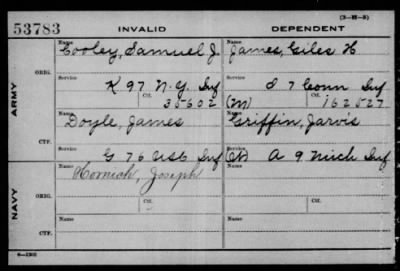 (3-H-5)
53783 INVALID DEPENDENT
Name Name
Cooley, Samuel J. James, Giles H
ORIG. Service Service
K 97 N.Y. Inf I 7 Conn Inf
Ctf. Ctf.
35602 (M) 162527
ARMY
Name Name
Doyle, James Griffin, Jarvis
CTF. Service Service
G 76 Inf A 9 Mich Inf
Name Name
Hornich, Joseph
ORIG. Service Service
Ctf. Ctf.
NAVY
Name Name
CTF. Service Service